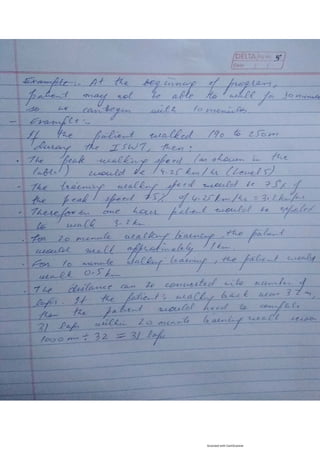 DELTA Pg No. 5
Date / /
Example:- At the beginning of program,
patient may not be able to walk for 30 minutes
so we can begin with 10 minutes.
- Example:-
If the patient walked 190 to 250m
during the ISWT, then:
· The peak walking speed (as shown in the
table) would be 4.25 km/hr (Level 5)
· The training walking speed would be 75% of
the peak speed 75% of 4.25 km/hr = 3.2 km/hr
· Therefore in one hour patient would be expected
to walk 3.2 km
· For 20 minute walking training, the patient
would walk approximately 1 km.
· For 10 minute walking training, the patient would
walk 0.5 km
· The distance can be converted into number of
laps. If the patient's walking track was 32 m,
then the patient would need to complete
31 laps within 20 minute training walk
1000 m ÷ 32 = 31 laps
Scanned with CamScanner